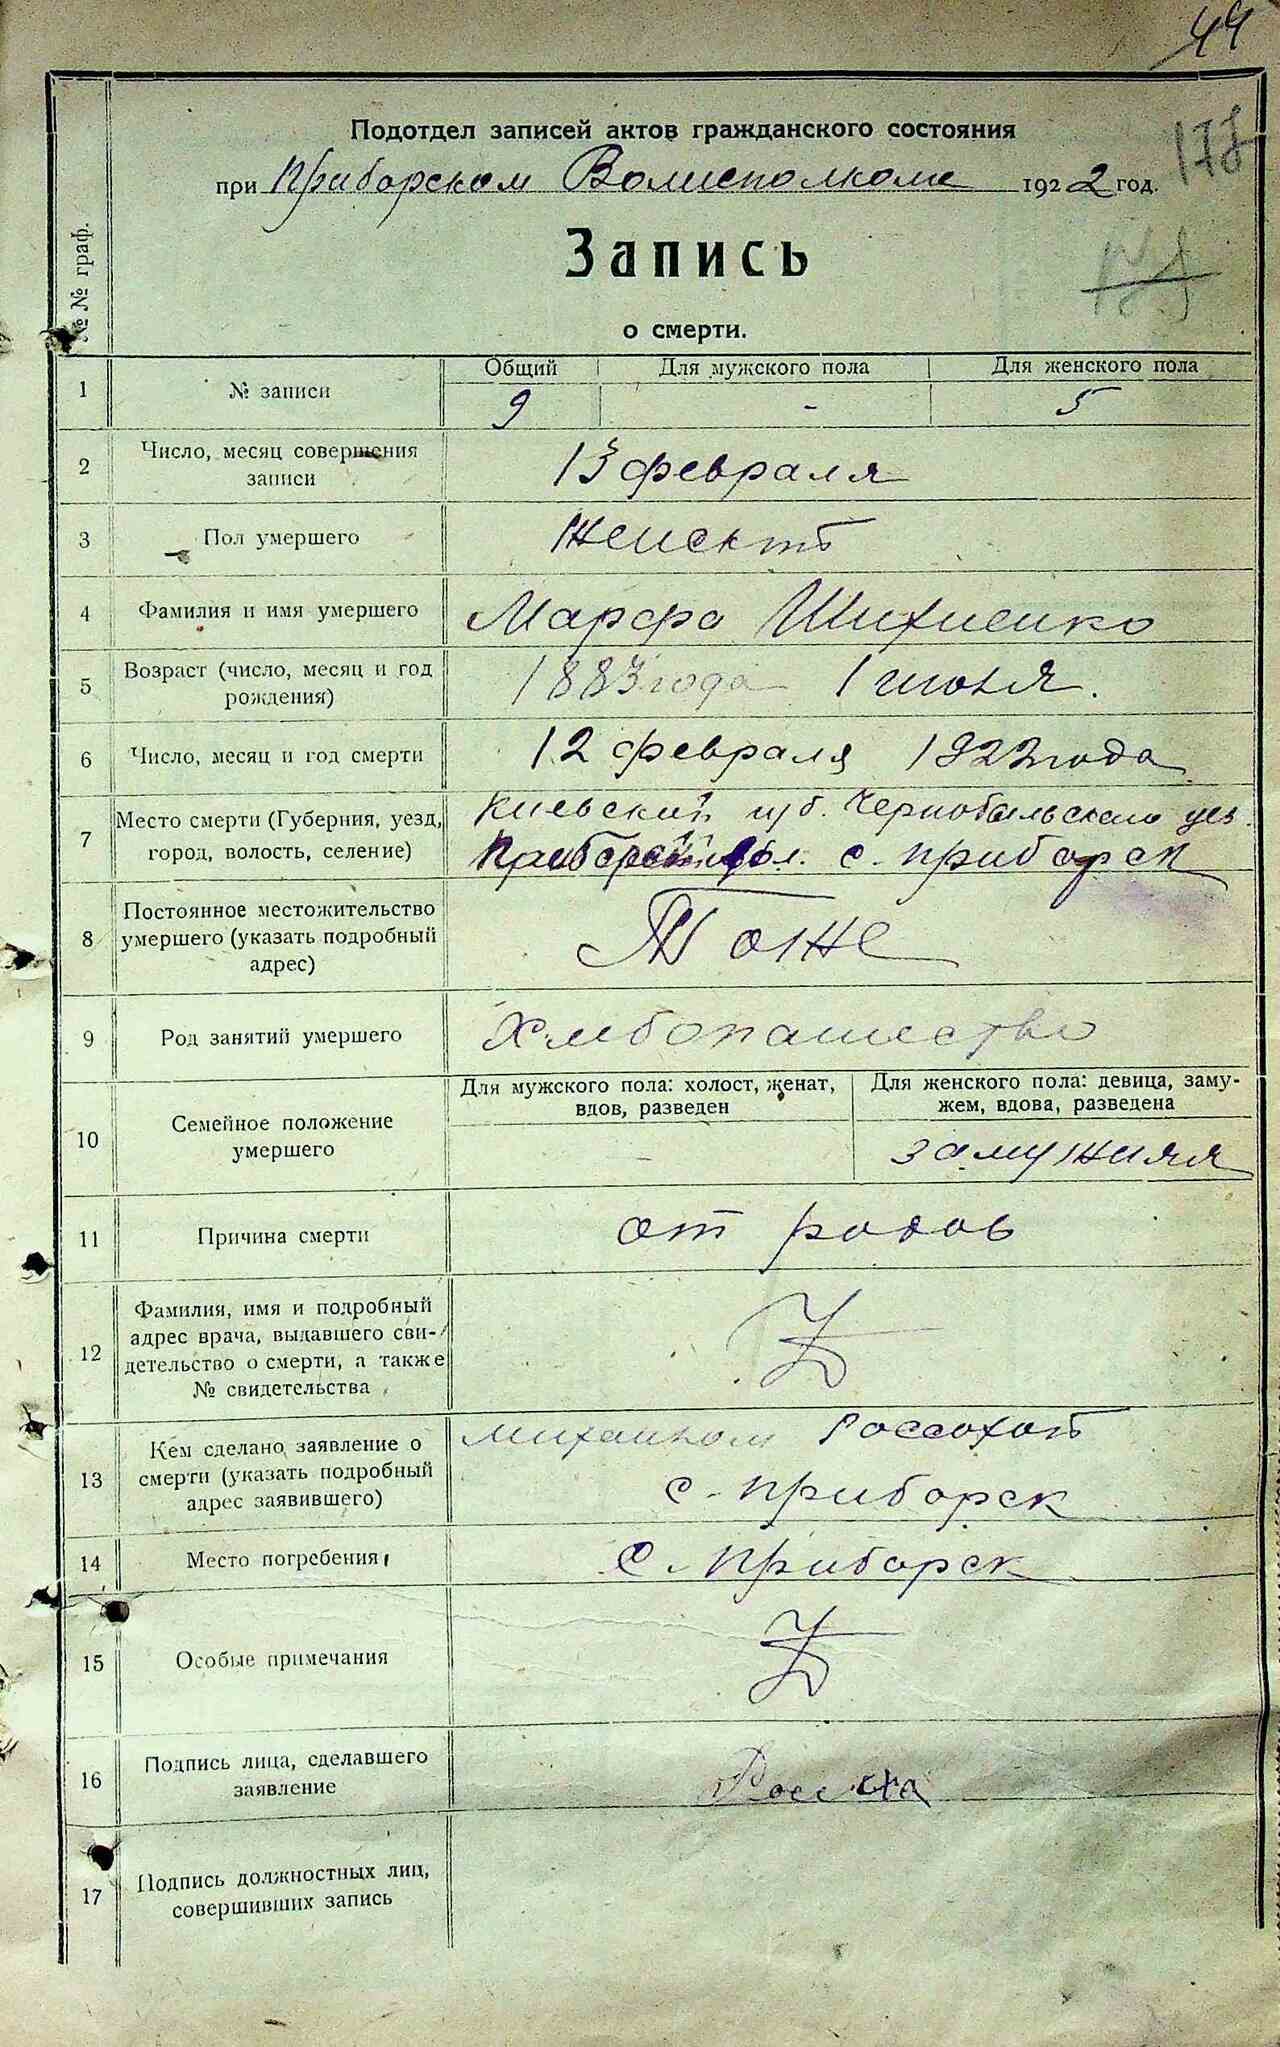 44
Подотдел записей актов гражданского состояния
при Приборском Волисполкоме 1922 год.
Запись
о смерти.
№№ граф.
1 № записи Общий Для мужского пола Для женского пола
9 - 5
2 Число, месяц совершения
записи
13 февраля
3 Пол умершего
4 Фамилия и имя умершего Марфа
5 Возраст (число, месяц и год
рождения)
1883 года 1 июня.
6 Число, месяц и год смерти 12 февраля 1922 года
7 Место смерти (Губерния, уезд,
город, волость, селение)
губ. уез.
вол. с. Приборск
8 Постоянное местожительство
умершего (указать подробный
адрес)
Тоже
9 Род занятий умершего Хлебопашество
10 Семейное положение
умершего
Для мужского пола: холост, женат,
вдов, разведен
Для женского пола: девица, заму-
жем, вдова, разведена
- замужняя
11 Причина смерти от родов
12 Фамилия, имя и подробный
адрес врача, выдавшего сви-
детельство о смерти, а также
№ свидетельства
13 Кем сделано заявление о
смерти (указать подробный
адрес заявившего)
Михаилом
с. Приборск
14 Место погребения с. Приборск
15 Особые примечания
16 Подпись лица, сделавшего
заявление
17 Подпись должностных лиц,
совершивших запись